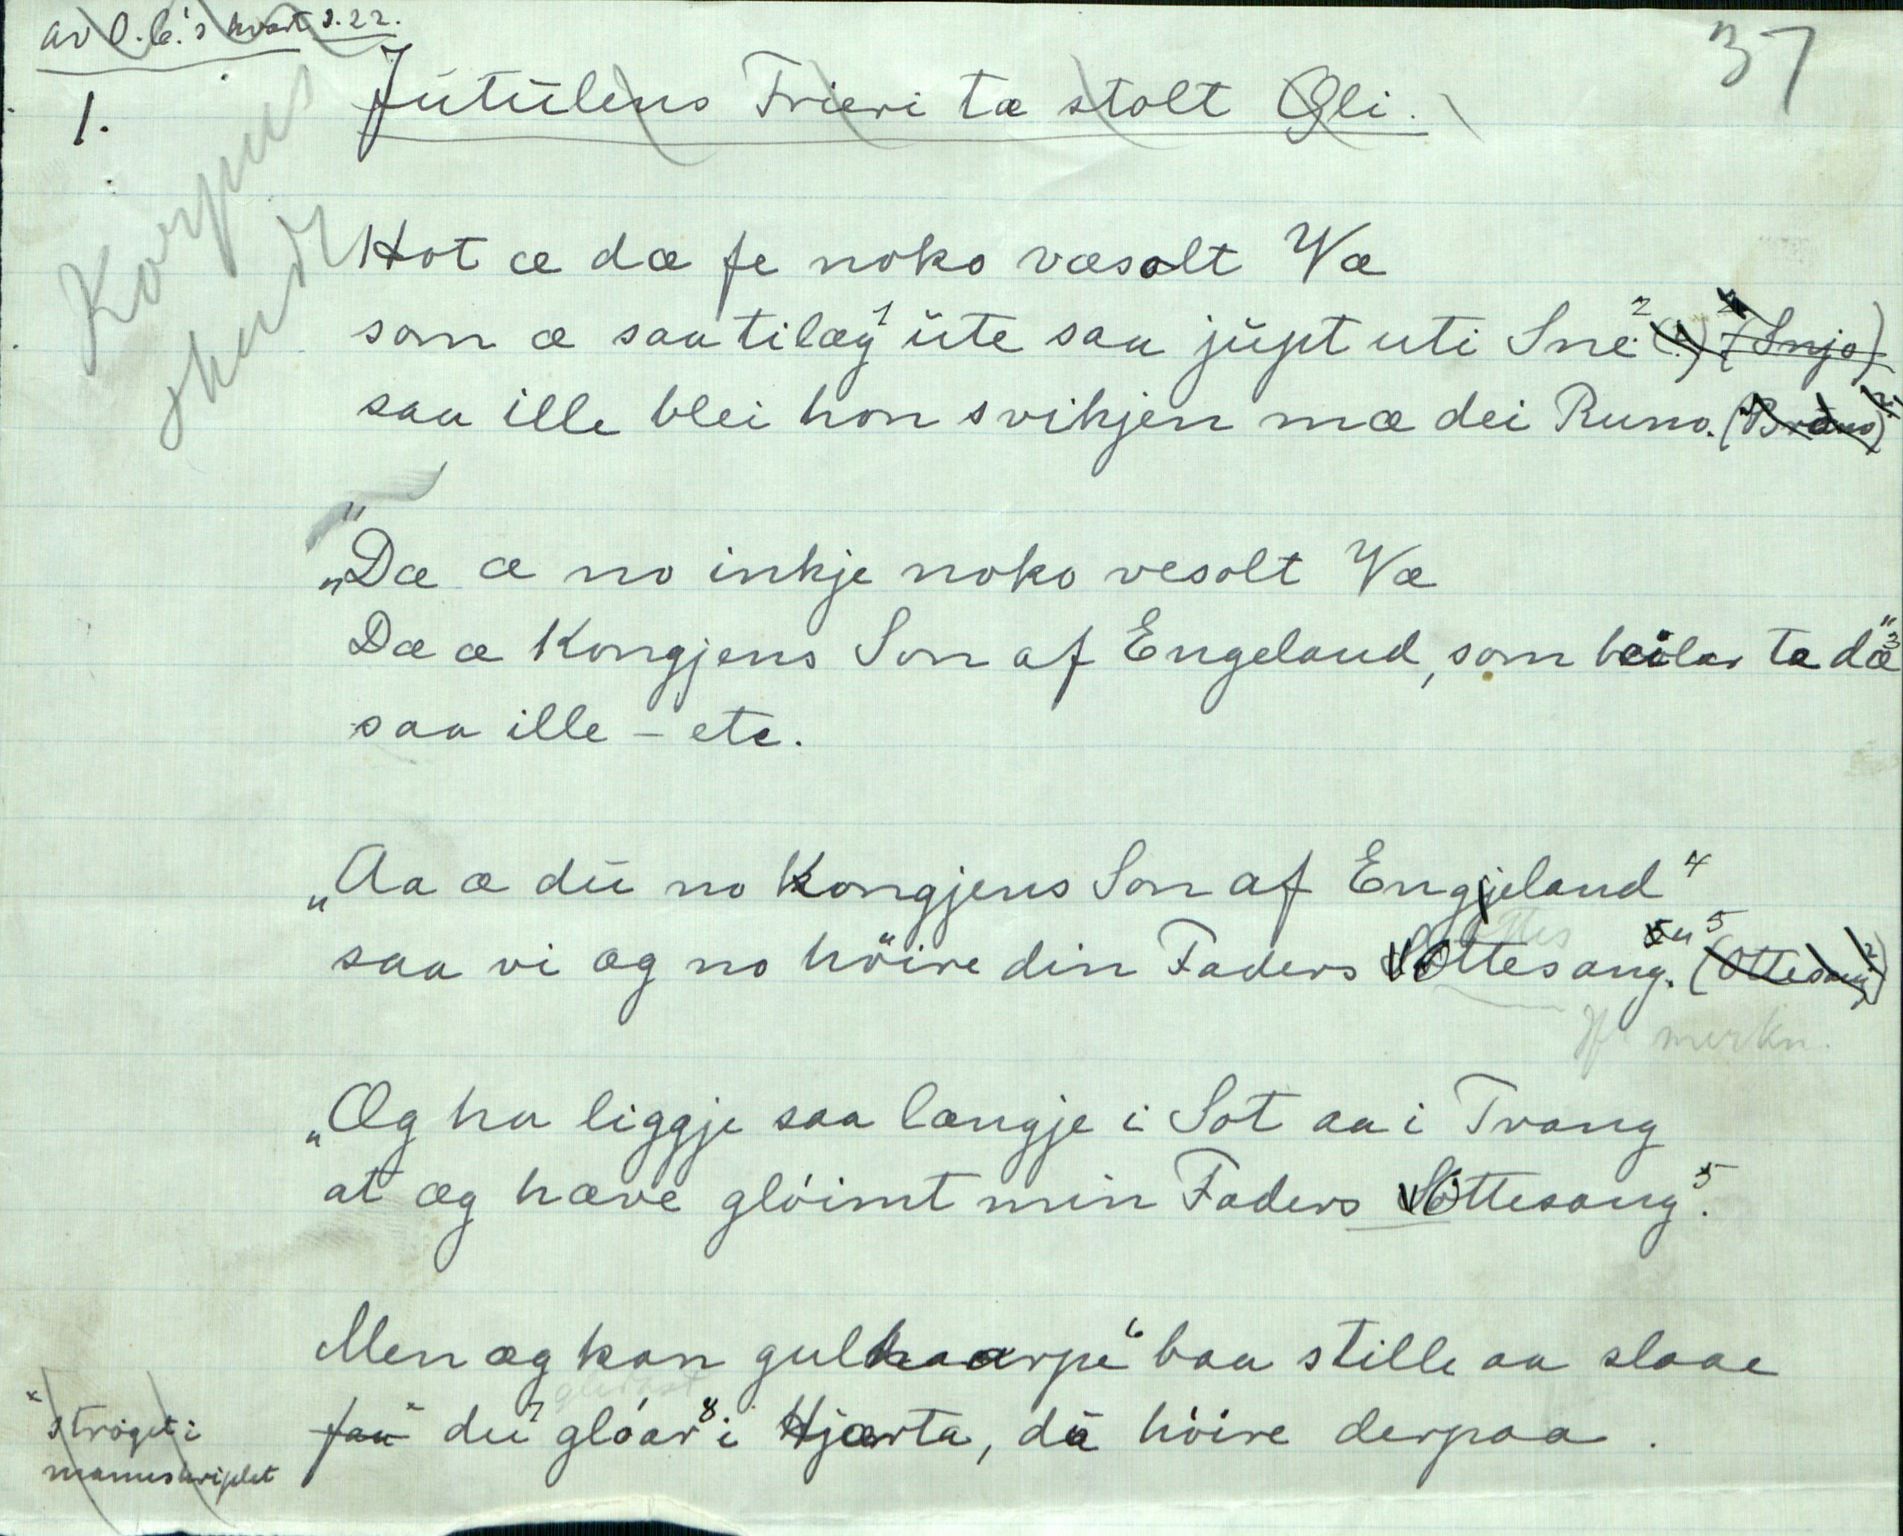 av O.C.'s kvart s.22.
37
1.
Jütülens Frieri tæ stolt Øli.
Korpus
Hot æ dæ fe noko væsolt Væ
som æ saa tilæg¹ üte saa jüpt uti Sne² (Snjo)
saa ille blei hon svikjen mæ dei Runo.
"Dæ æ no inkje noko vesolt Væ
Dæ æ Kongjens Son af Engeland, som beilar tæ dæ"³
saa ille – etc.
"Aa æ dü no Kongjens Son af Engjeland⁴
saa vi æg no höire din Faders Sottesang."⁵ (Ottesang)
jfr merkn.
"Æg ha liggje saa længje i Sot aa i Trang
at æg hæve glöimt min Faders Sottesang⁵.
Men æg kan gulhaarpe⁶ baa stille aa slaae
faa* dü⁷ glóar⁸ i Hjærta, dü höire derpaa.
* strøget i
manuskriplet